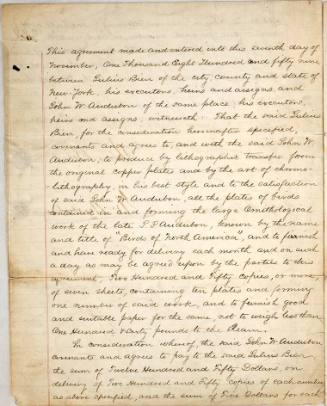 This agreement made and entered into this seventh day of
November, One Thousand Eight Hundred and fifty nine
between Julius Bien of the city, county and state of
New York, his executors, heirs and assigns, and
John W. Audubon of the same place, his executors,
heirs and assigns, witnesseth: That the said Julius
Bien, for the consideration hereinafter specified,
covenants and agrees to, and with the said John W.
Audubon, to produce by lithographic transfer from
the original copper plates and by the art of chromo-
lithography, in his best style and to the satisfaction
of said John W. Audubon, all the plates of birds
contained in and forming the large Ornithological
work of the late J. J. Audubon, known by the name
and title of "Birds of North American", and to furnish
and have ready for delivery each month and on such
a day as may be agreed upon by the parties to this
agreement Two Hundred and Fifty Copies, or more,
of seven sheets, containing ten plates and forming
one number of said work, and to furnish good
and suitable paper for the same, not to weigh less than
One Hundred & sixty pounds to the Ream.
In consideration whereof, the said John W. Audubon
covenants and agrees to pay to the said Julius Bien
the sum of Twelve Hundred and Fifty Dollars, on
delivery of Two Hundred and Fifty Copies of each number
as above specified, and the sum of Five Dollars for each